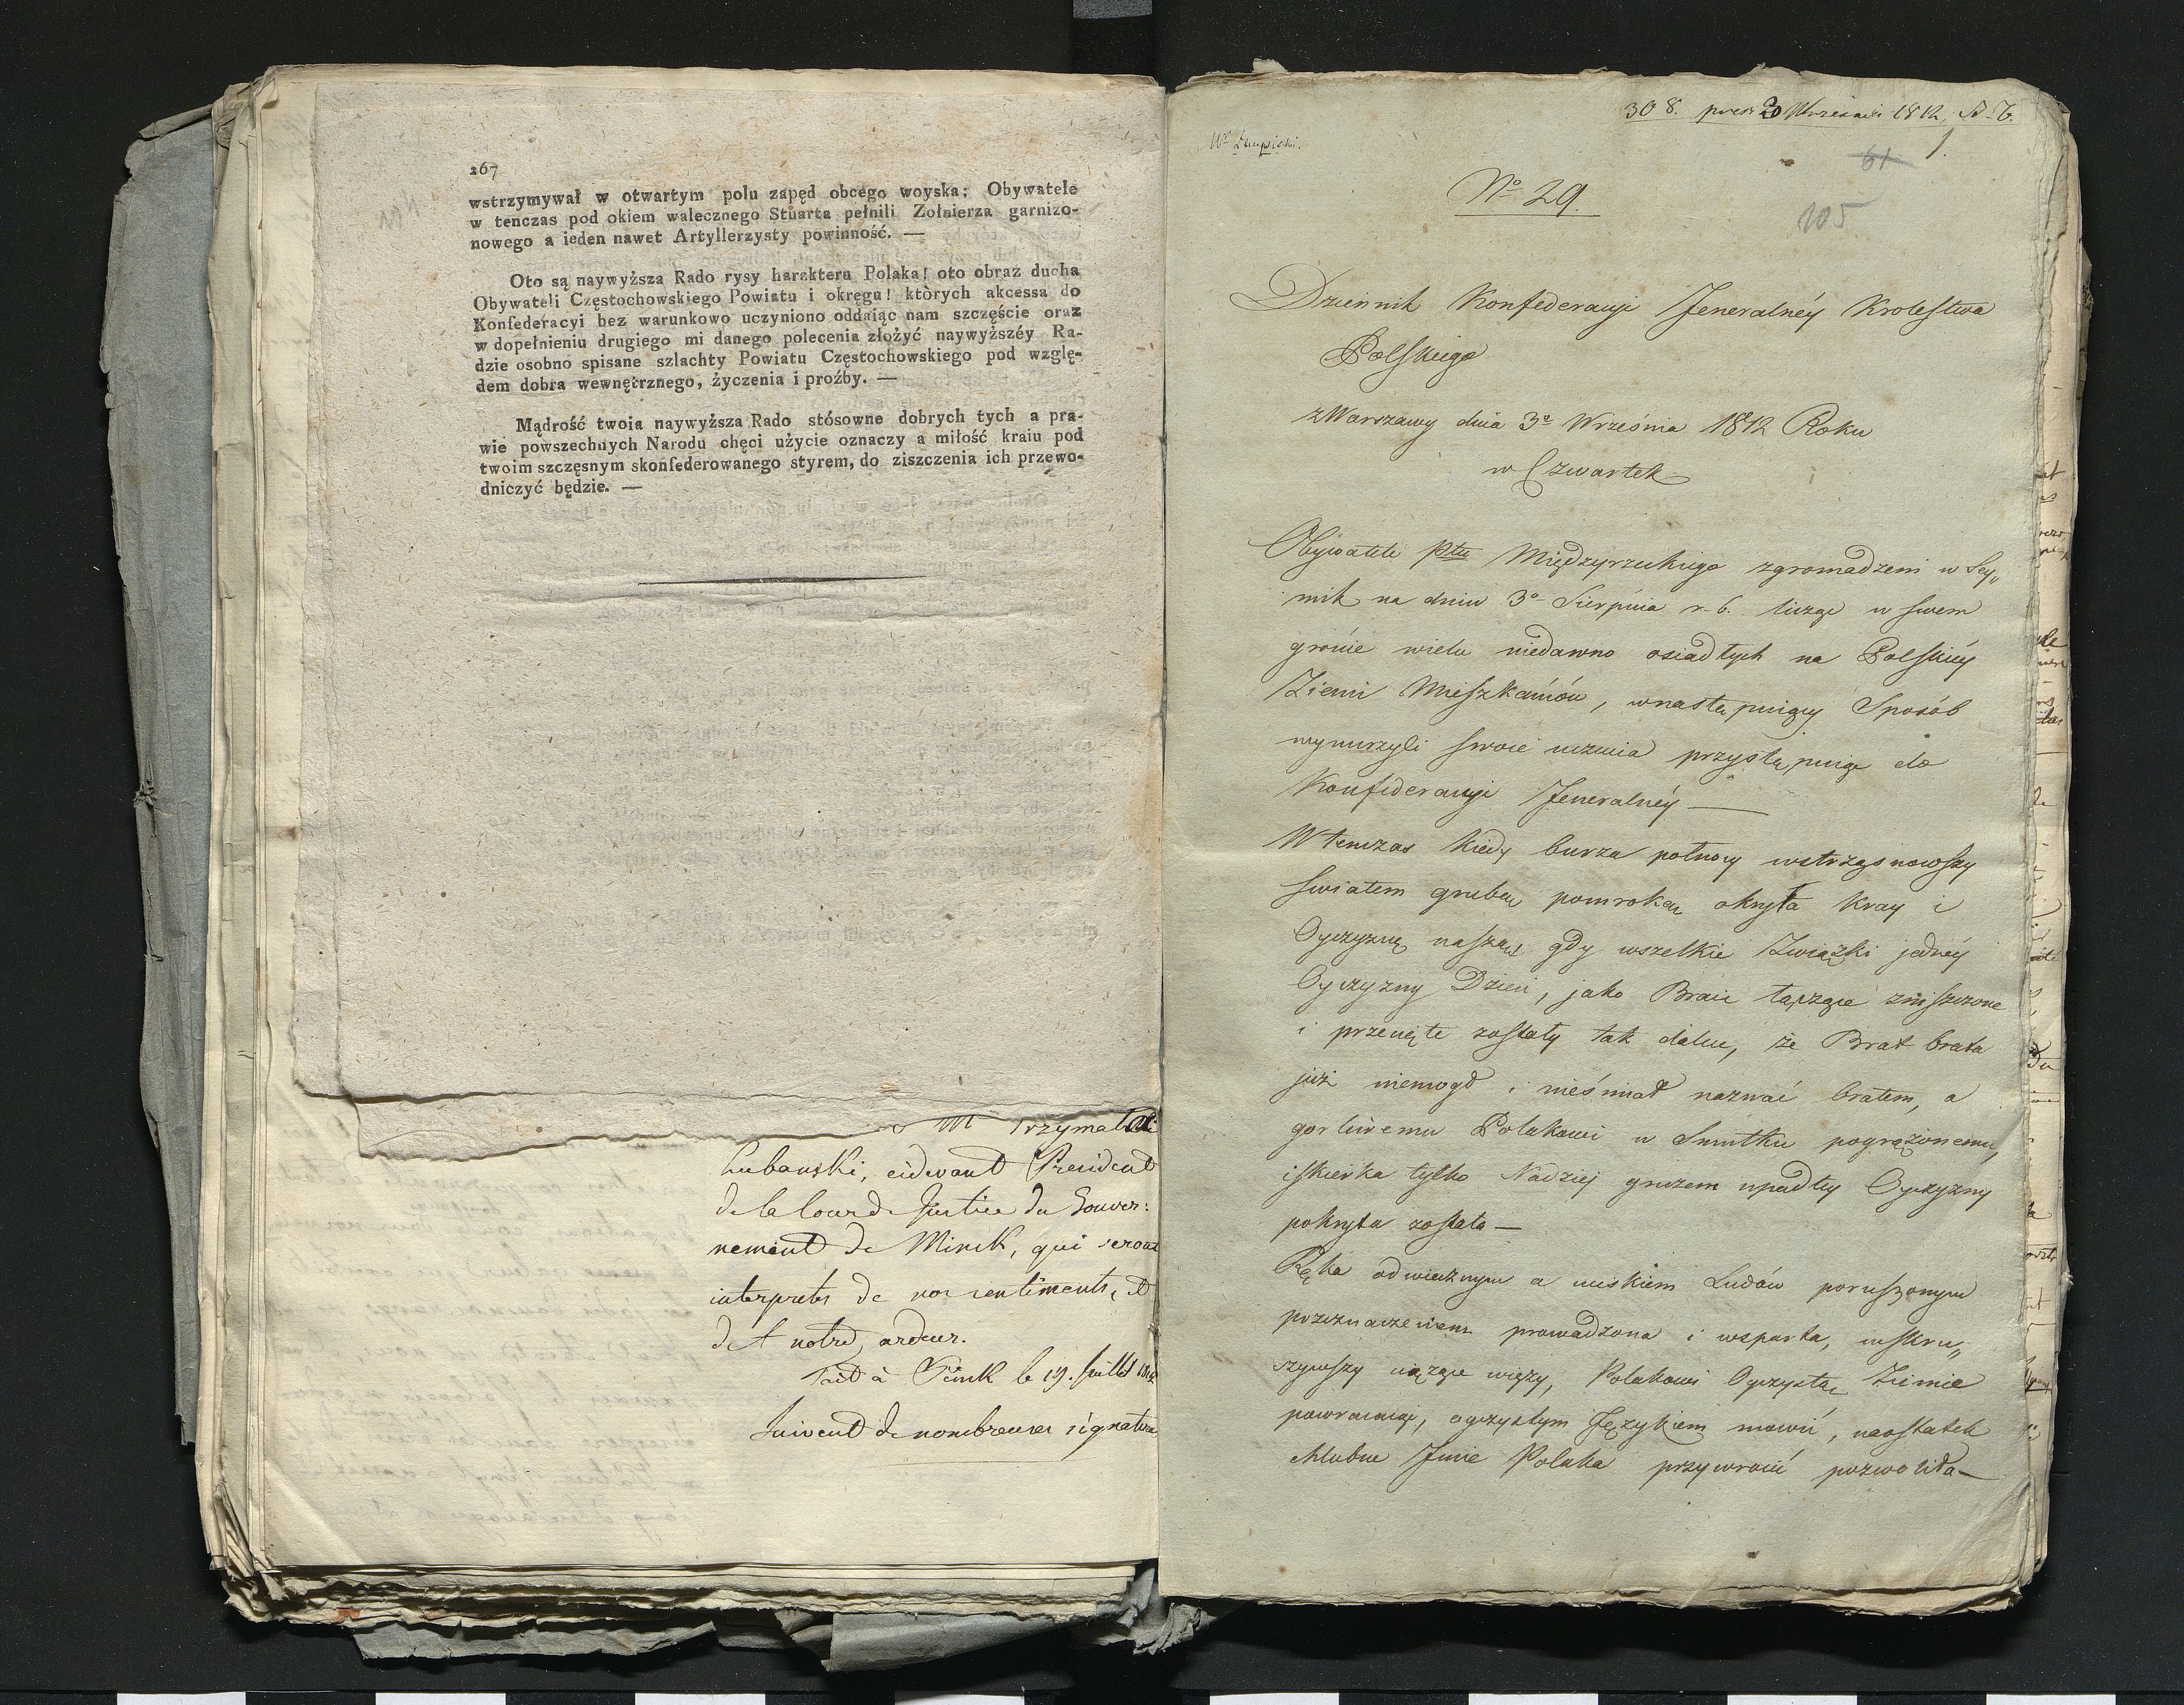 267
wstrzymywał w otwartym polu zapęd obcego woyska; Obywatele
w tenczas pod okiem walecznego Stuarta pełnili Zołnierza garnizo-
nowego a ieden nawet Artyllerzysty powinność. —
Oto są naywyższa Rado rysy harakteru Polaka! oto obraz ducha
Obywateli Częstochowskiego Powiatu i okręgu! których akcessa do
Konfederacyi bez warunkowo uczyniono oddaiąc nam szczęście oraz
w dopełnieniu drugiego mi danego polecenia złożyć naywyższéy Ra-
dzie osobno spisane szlachty Powiatu Częstochowskiego pod wzglę-
dem dobra wewnętrznego, życzenia i proźby. —
Mądrość twoia naywyższa Rado stósowne dobrych tych a pra-
wie powszechnych Narodu chęci użycie oznaczy a miłość kraiu pod
twoim szczęsnym skonfederowanego styrem, do ziszczenia ich przewo-
dniczyć będzie. —
Lubanski, cidevant President
de la Cour de Justice du Gouver:
nement de Minsk, qui seront
interpretes de nos sentiments, et
de notre ardeur.
Fait à Pinsk le 19. Juillet 1812
Suivent de nombreuses signatures
308. pres 20 Września 1812,
1.
61
105
No 29.
Dziennik Konfederacyi Jeneralnéy Krolestwa
Polskiego
z Warszawy dnia 3o Września 1812 Roku
w Czwartek
Obywatele Ptu Międzyrzeckiego zgromadzeni w Sey„
mik na dniu 3o Sierpnia r. b. licząc w swem
gronie wielu niedawno osiadłych na Polskiéy
Ziemi Mieszkańców, w nastąpuiący Sposób
wynurzyli swoie uczucia przystąpuiąc do
Konfederacyi Jeneralnéy —
W tenczas kiedy burza połnocy wstrząsnąwszy
swiatem grubą pomroką okryła Kray i
Oyczyznę naszą gdy wszelkie Związki jednéy
Oyczyzny Dzieci, jako Braci łączące zniszczone
i przecięte zostały tak dalece, że Brat brata
już niemogł i nieśmiał nazwać bratem, a
gorliwemu Polakowi w Smutku pogrążonemu,
iskierka tylko Nadziej gruzem upadłey Oyczyzny
pokryta została —
Ręka odwiecznym a uciskiem Ludów poruszonym
przeznaczeniem prowadzona i wsparta, wskru„
szywszy ciążące więzy, Polakowi Oyczystą Ziemie
powracaiąc, oyczystym Językiem mowić, naostatek
chlubne Jmie Polaka przywrocić pozwoliła —